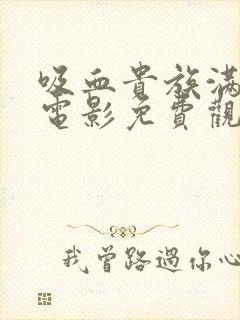 吸血貴族滿
電影免費觀
我曾路過你心